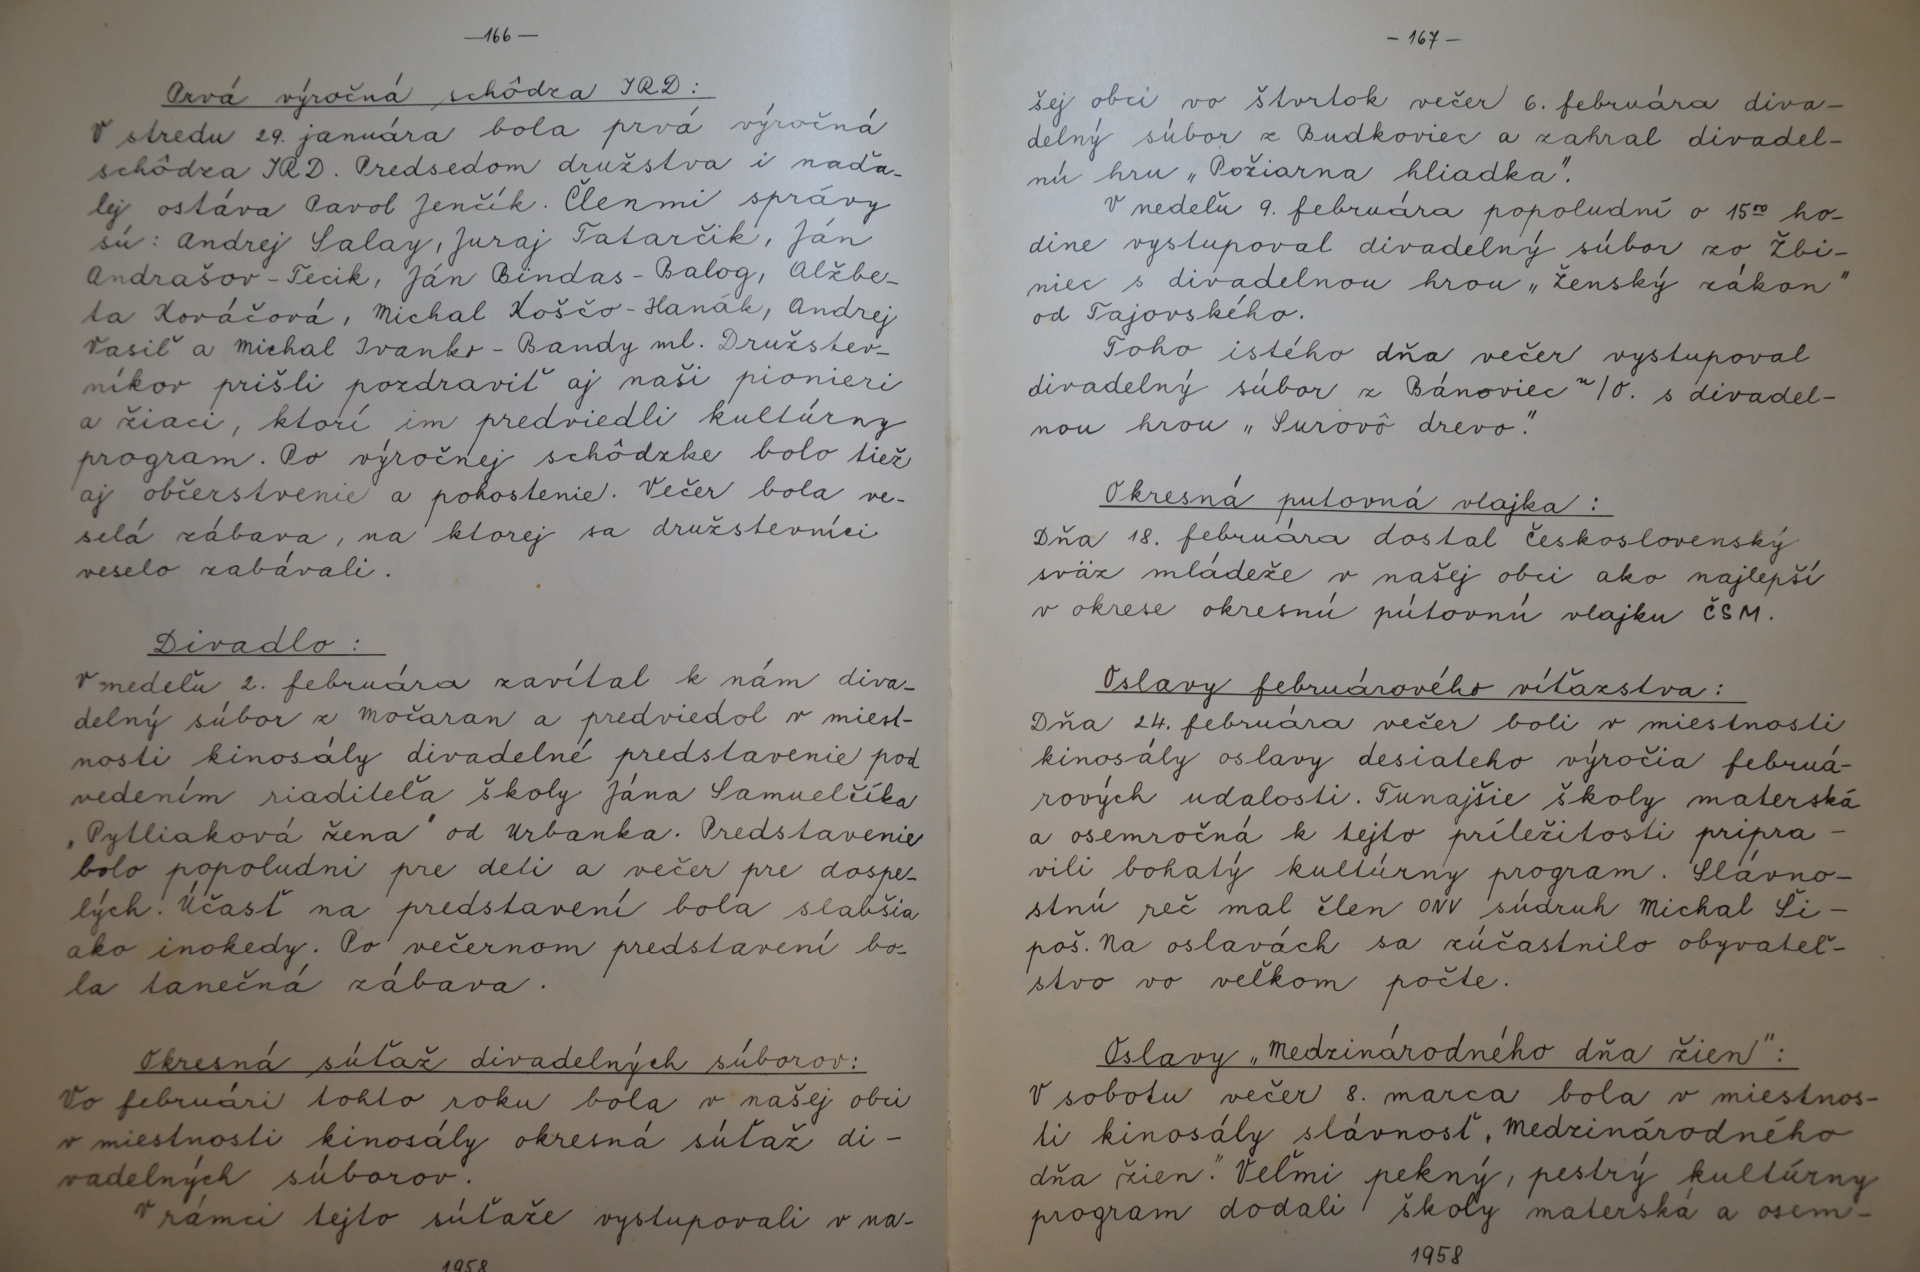 —166—
Prvá výročná schôdza JRD:
V stredu 29. januára bola prvá výročná
schôdza JRD. Predsedom družstva i naďa-
lej ostáva Pavol Jenčík. Členmi správy
sú: Andrej Salay, Juraj Tatarčik, Ján
Andrašov-Tecik, Ján Bindas-Balog, Alžbe-
ta Kováčová, Michal Koščo-Hanák, Andrej
Vasiľ a Michal Ivanko-Bandy ml. Družstev-
níkov prišli pozdraviť aj naši pionieri
a žiaci, ktorí im predviedli kultúrny
program. Po výročnej schôdzke bolo tiež
aj občerstvenie a pohostenie. Večer bola ve-
selá zábava, na ktorej sa družstevníci
veselo zabávali.
Divadlo:
V nedeľu 2. februára zavítal k nám diva-
delný súbor z Močaran a predviedol v miest-
nosti kinosály divadelné predstavenie pod
vedením riaditeľa školy Jána Samuelčíka
„Pytliaková žena" od Urbanka. Predstavenie
bolo popoludni pre deti a večer pre dospe-
lých. Účasť na predstavení bola slabšia
ako inokedy. Po večernom predstavení bo-
la tanečná zábava.
Okresná súťaž divadelných súborov:
Vo februári tohto roku bola v našej obci
v miestnosti kinosály okresná súťaž di-
vadelných súborov.
V rámci tejto súťaže vystupovali v na-
1958
- 167 -
šej obci vo štvrtok večer 6. februára diva-
delný súbor z Budkoviec a zahral divadel-
nú hru „Požiarna hliadka".
V nedeľu 9. februára popoludní o 15ºº ho-
dine vystupoval divadelný súbor zo Žbi-
niec s divadelnou hrou „Ženský zákon"
od Tajovského.
Toho istého dňa večer vystupoval
divadelný súbor z Bánoviec n/O. s divadel-
nou hrou „Surovô drevo".
Okresná putovná vlajka:
Dňa 18. februára dostal Československý
sväz mládeže v našej obci ako najlepší
v okrese okresnú pútovnú vlajku ČSM.
Oslavy februárového víťazstva:
Dňa 24. februára večer boli v miestnosti
kinosály oslavy desiateho výročia februá-
rových udalosti. Tunajšie školy materská
a osemročná k tejto príležitosti pripra-
vili bohatý kultúrny program. Slávno-
stnú reč mal člen ONV súdruh Michal Ši-
poš. Na oslavách sa zúčastnilo obyvateľ-
stvo vo veľkom počte.
Oslavy „Medzinárodného dňa žien":
V sobotu večer 8. marca bola v miestnos-
ti kinosály slávnosť „Medzinárodného
dňa žien". Veľmi pekný, pestrý kultúrny
program dodali školy materská a osem-
1958